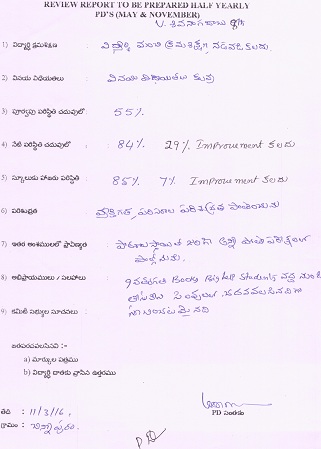 REVIEW REPORT TO BE PREPARED HALF YEARLY
PD'S (MAY & NOVEMBER)
V. శివనాగరాజు 9th
1) విద్యార్థి క్రమశిక్షణ : విద్యార్థి మంచి క్రమశిక్షణ, నడవడి కలదు.
2) వినయ విధేయతలు : వినయ విధేయతలు కలవు
3) పూర్వపు పరిస్థితి చదువులో : 55%.
4) నేటి పరిస్థితి చదువులో : 84%. 29% Improvement కలదు
5) స్కూలుకు హాజరు పరిస్థితి : 85%. 7% Improvement కలదు
6) పరిశుభ్రత : వ్యక్తిగత, పరిసరాల పరిశుభ్రత పాటించును
7) ఇతర అంశములలో ప్రావీణ్యత :
8) అభిప్రాయములు / సలహాలు : 9వ తరగతి Books Students వద్ద
9) కమిటీ సభ్యుల సూచనలు :
జతపరచవలసినవి :-
a) మార్కుల పత్రము
b) విద్యార్థి దాతకు వ్రాసిన ఉత్తరము
PD సంతకం
తేది : 11/3/16.
గ్రామం :
PD